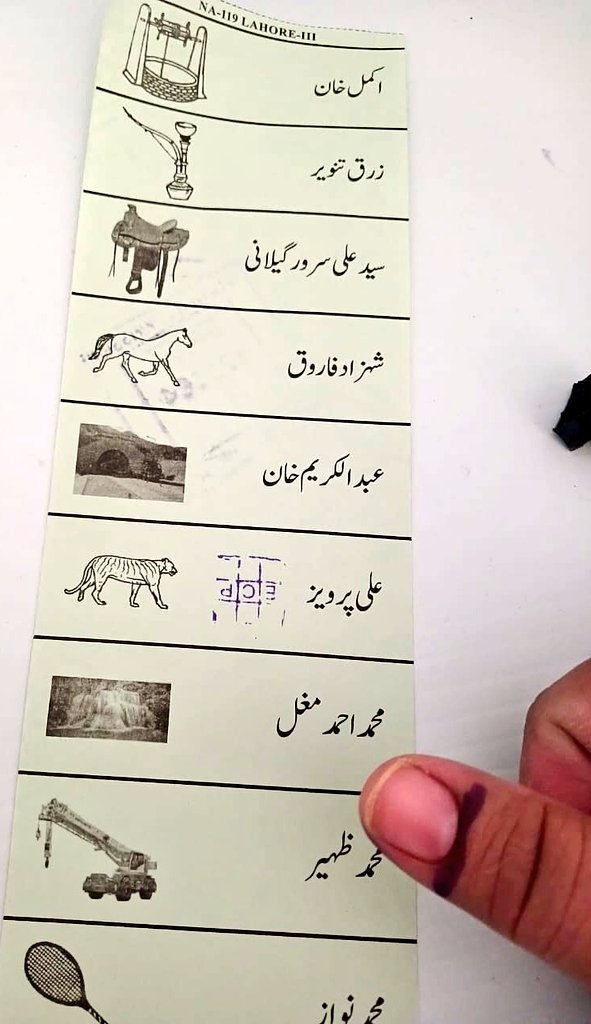 NA-119 LAHORE-III
اکمل خان
زرق تنویر
سید علی سرور گیلانی
شہزاد فاروق
عبدالکریم خان
علی پرویز
ECP
محمد احمد مغل
محمد ظہیر
محمد نواز